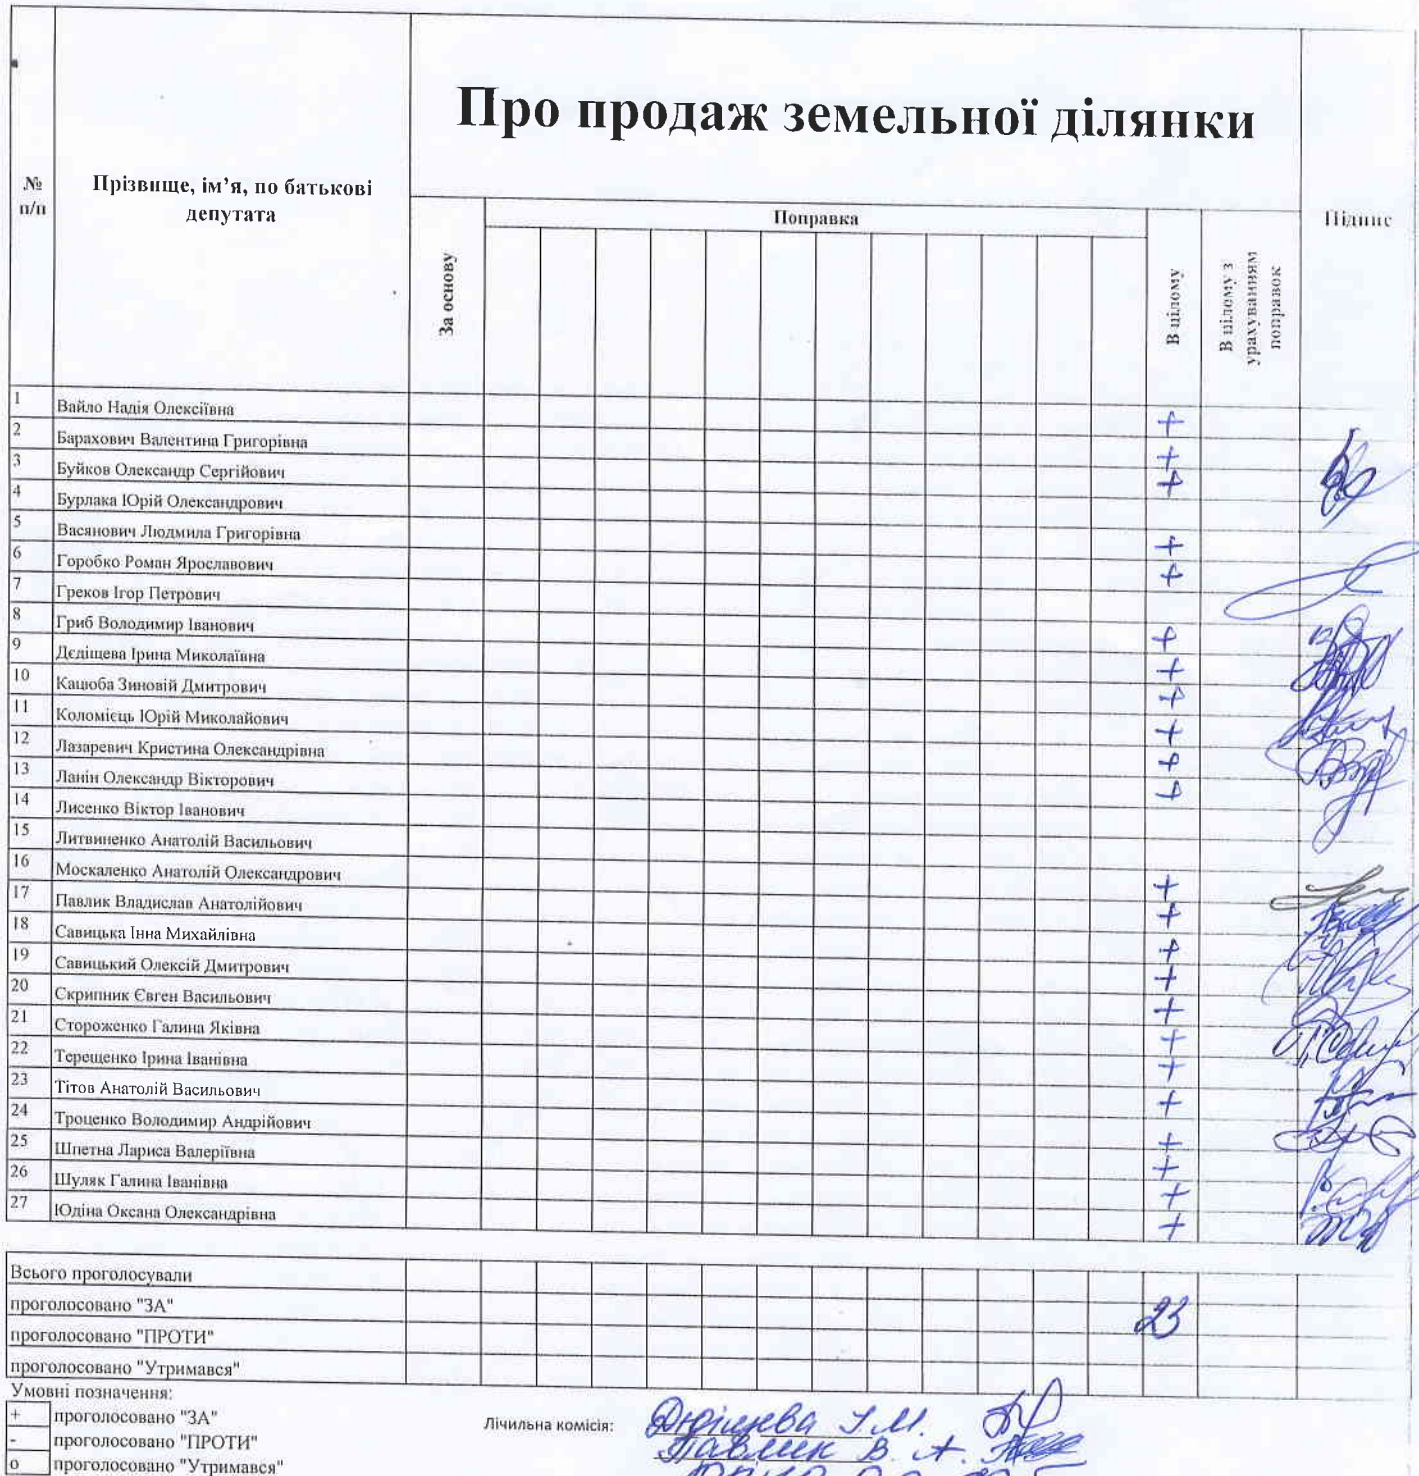 Про продаж земельної ділянки
№ п/п
Прізвище, ім’я, по батькові
депутата
За основу
Поправка
В цілому
В цілому з
урахуванням
поправок
Підпис
1 Вайло Надія Олексіївна +
2 Барахович Валентина Григорівна +
3 Буйков Олександр Сергійович +
4 Бурлака Юрій Олександрович
5 Васянович Людмила Григорівна +
6 Горобко Роман Ярославович +
7 Греков Ігор Петрович
8 Гриб Володимир Іванович +
9 Дєдіщева Ірина Миколаївна +
10 Кацюба Зиновій Дмитрович +
11 Коломієць Юрій Миколайович +
12 Лазаревич Кристина Олександрівна +
13 Ланін Олександр Вікторович +
14 Лисенко Віктор Іванович
15 Литвиненко Анатолій Васильович
16 Москаленко Анатолій Олександрович +
17 Павлик Владислав Анатолійович +
18 Савицька Інна Михайлівна +
19 Савицький Олексій Дмитрович +
20 Скрипник Євген Васильович +
21 Стороженко Галина Яківна +
22 Терещенко Ірина Іванівна +
23 Тітов Анатолій Васильович +
24 Троценко Володимир Андрійович +
25 Шпетна Лариса Валеріївна +
26 Шуляк Галина Іванівна +
27 Юдіна Оксана Олександрівна +
Всього проголосували
проголосовано "ЗА" 23
проголосовано "ПРОТИ"
проголосовано "Утримався"
Умовні позначення:
+ проголосовано "ЗА"
- проголосовано "ПРОТИ"
о проголосовано "Утримався"
Лічильна комісія: Дєдіщева І.М.
Павлик В. А.